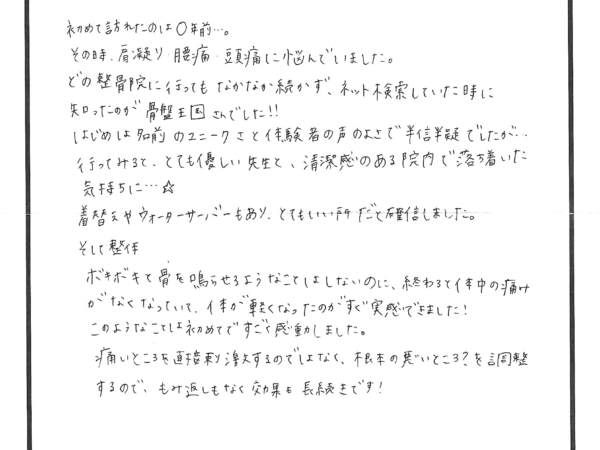 初めて訪れたのは〇年前…。
その時、肩凝り・腰痛・頭痛に悩んでいました。
どの整骨院に行ってもなかなか続かず、ネット検索していた時に
知ったのが骨盤王国さんでした!!
はじめは名前のユニークさと体験者の声のよさで半信半疑でしたが…
行ってみると、とても優しい先生と、清潔感のある院内で落ち着いた
気持ちに…☆
着替えやウォーターサーバーもあり、とてもいい所だと確信しました。
そして整体
ボキボキと骨を鳴らせるようなことはしないのに、終わると体中の痛み
がなくなっていて、体が軽くなったのがすぐ実感できました!
このようなことは初めてですごく感動しました。
痛いところを直接刺激するのではなく、根本の悪いところ?を調整
するので、もみ返しもなく効果も長続きです!